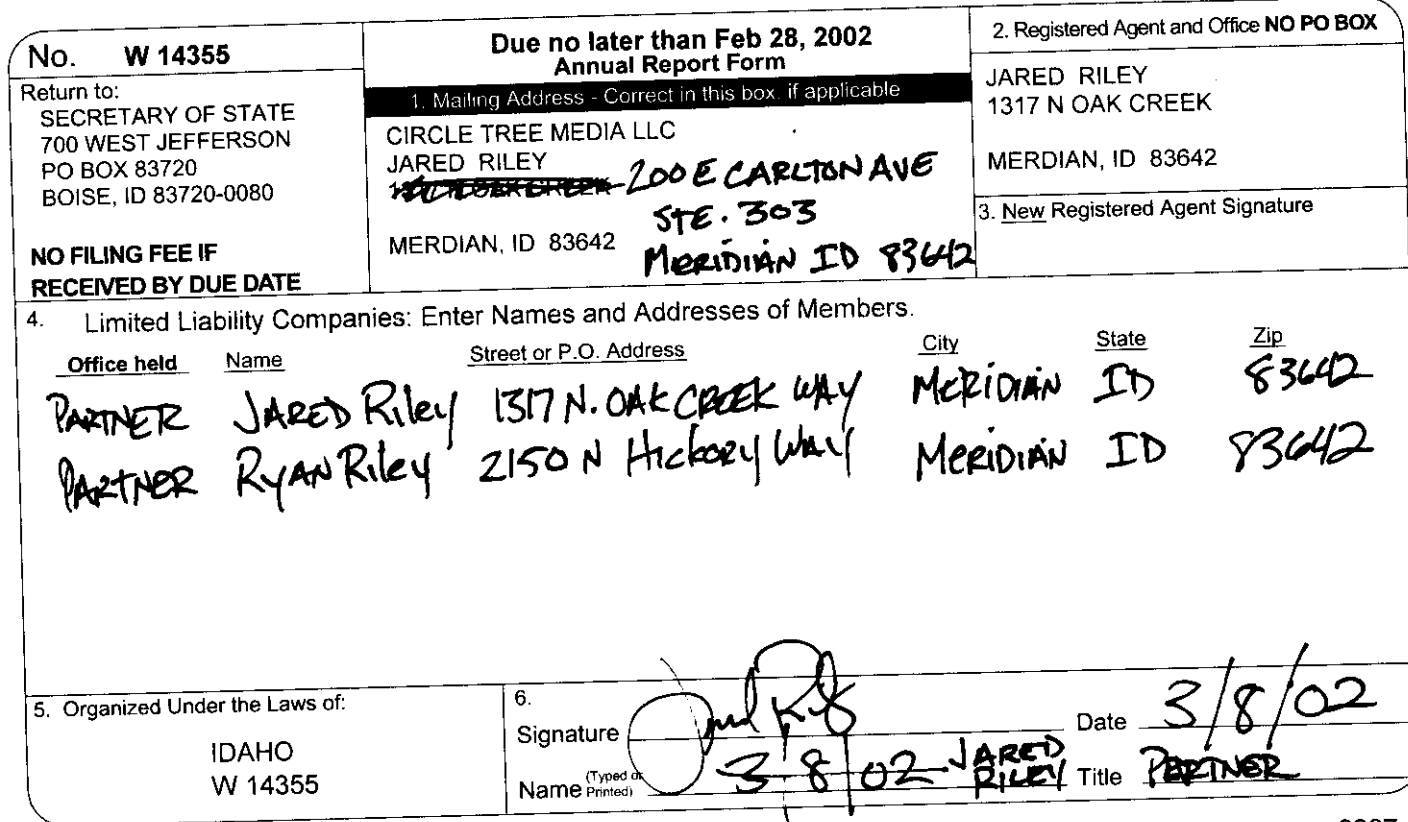 No. W 14355
Return to:
SECRETARY OF STATE
700 WEST JEFFERSON
PO BOX 83720
BOISE, ID 83720-0080
NO FILING FEE IF
RECEIVED BY DUE DATE
Due no later than Feb 28, 2002
Annual Report Form
1. Mailing Address - Correct in this box, if applicable
CIRCLE TREE MEDIA LLC
JARED RILEY
200 E CARLTON AVE
STE. 303
MERDIAN, ID 83642
MERIDIAN ID 83642
2. Registered Agent and Office NO PO BOX
JARED RILEY
1317 N OAK CREEK
MERDIAN, ID 83642
3. New Registered Agent Signature
4. Limited Liability Companies: Enter Names and Addresses of Members.
Office held Name Street or P.O. Address City State Zip
PARTNER JARED Riley 1317 N. OAK CREEK WAY MERIDIAN ID 83642
PARTNER RYAN Riley 2150 N Hickory Way MERIDIAN ID 83642
5. Organized Under the Laws of:
IDAHO
W 14355
6.
Signature Date 3/8/02
Name (Typed or Printed) 3 8 02 JARED RILEY Title PARTNER